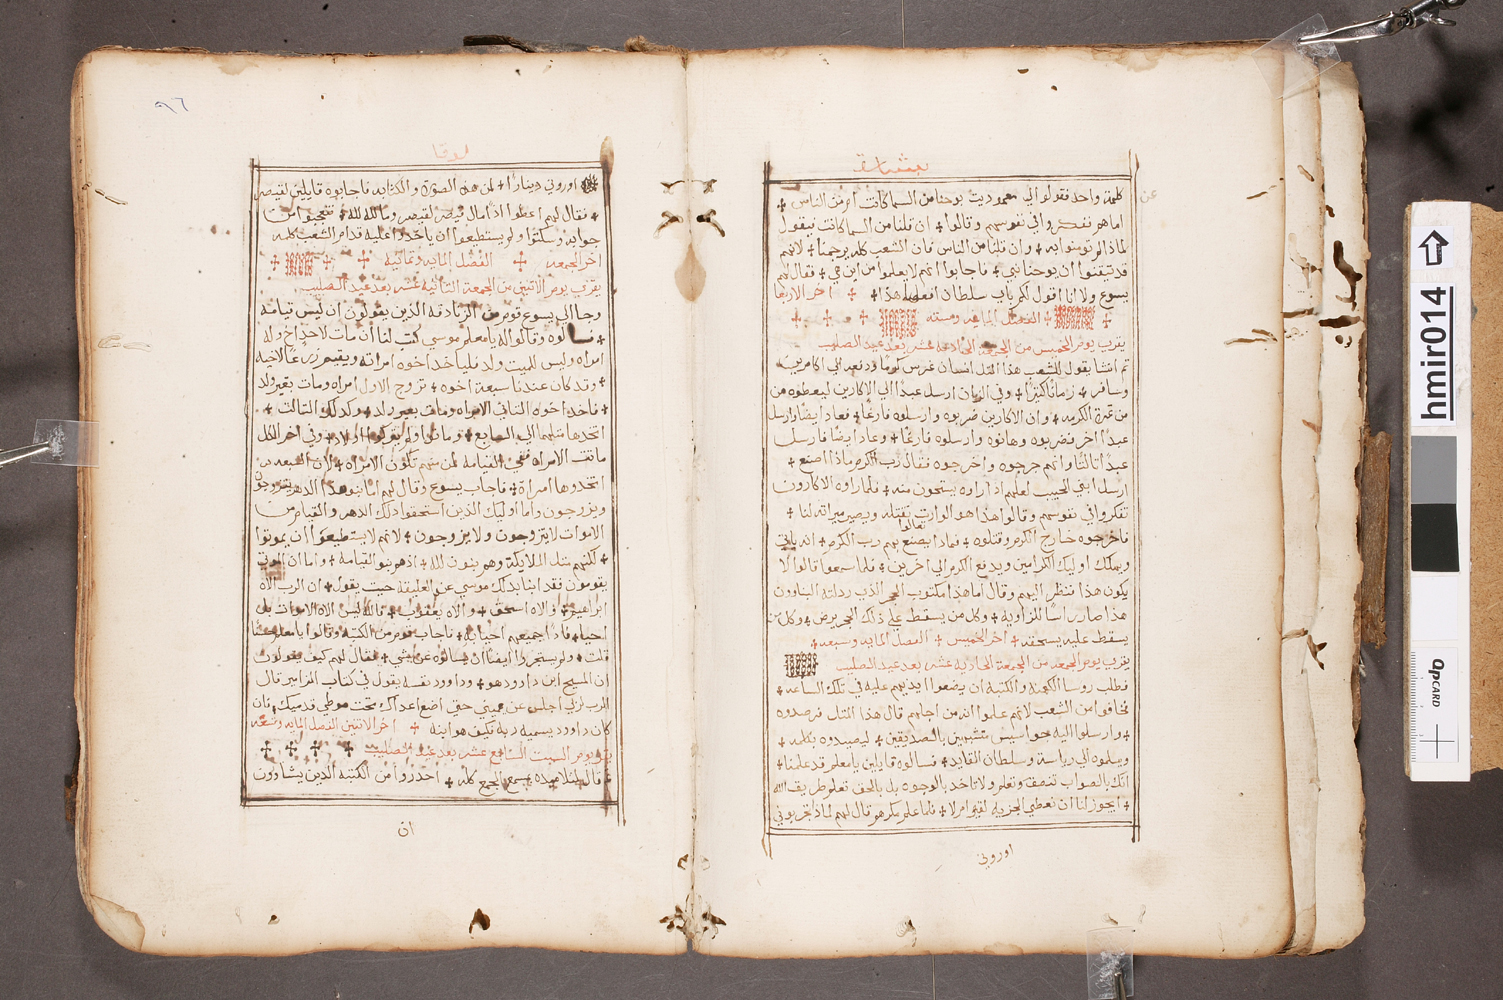 بشارة
كلمة واحده فقولوا لي معموديت يوحنا من السما كانت ام من الناس
اما هم ففكروا في نفوسهم وقالوا ان قلنا من السما كانت فيقول
لماذا لم تومنوا به وان قلنا من الناس فان الشعب كله يرجمنا لانهم
قد تيقنوا ان يوحنا نبي فاجابوا انهم لا يعلموا من اين هي فقال لهم
يسوع ولا انا اقول لكم باي سلطان افعل هذا اخر الاربعا
الفصل المايه وسته
يقري يوم الخميس من الجمعة الحادية عشر بعد عيد الصليب
ثم انشا يقول للشعب هذا المثل انسان غرس كرما ودفعه الي اكارين
وسافر زمانا كثيرا وفي الزمان ارسل عبدا الي الاكارين ليعطوه من
من ثمرة الكرمه وان الاكارين ضربوه وارسلوه فارغا فعاد ايضا وارسل
عبدا اخر فضربوه وهانوه وارسلوه فارغا وعاد ايضا فارسل
عبدا ثالثا وانهم جرحوه واخرجوه فقال رب الكرم ماذا اصنع
ارسل ابني الحبيب لعلهم اذا راوه يستحون منه فلما راوه الاكارون
تفكروا في نفوسهم وقالوا هذا هو الوارث تعالوا نقتله ويصير ميراثه لنا
فاخرجوه خارج الكرم وقتلوه فماذا يصنع بهم رب الكرم انه ياتي
ويهلك اوليك الكرامين ويدفع الكرم الي اخرين فلما سمعوا قالوا لا
يكون هذا فنظر اليهم وقال اما هذا مكتوب الحجر الذي رذلته البناوون
هذا صار راسا للزاويه وكل من يسقط علي ذلك الحجر يرض وكل من
يسقط عليه يسحقه اخر الخميس الفصل المايه وسبعه
يقري يوم الجمعه من الجمعة الحادية عشر بعد عيد الصليب
فطلب روسا الكهنة والكتبه ان يضعوا ايديهم عليه في تلك الساعه
فخافوا من الشعب لانهم علموا انه من اجلهم قال هذا المثل فرصدوه
وارسلوا اليه جواسيس متشبهين بالصديقين ليصيدوه بكلمه
ويسلموه الي رياسة وسلطان القايد فسالوه قايلين يا معلم قد علمنا
انك بالصواب تنطق وتعلم ولا تاخذ بالوجوه بل بالحق تعلم طريق الله
ايجوز لنا ان نعطي الجزيه لقيصر ام لا فلما علم مكرهم قال لهم لماذا تجربوني
اوروني
٩٦
لوقا
اوروني دينارا لمن هذه الصورة والكتابه فاجابوه قايلين لقيصر
فقال لهم اعطوا اذا مال قيصر لقيصر وما لله لله فتعجبوا من
جوابه وسكتوا ولم يستطيعوا ان ياخذوا عليه قدام الشعب كلمه
اخر الجمعه الفصل المايه وثمانيه
يقري يوم الاثنين من الجمعة الثانية عشر بعد عيد الصليب
وجا الي يسوع قوم من الزنادقه الذين يقولون ان ليس قيامه
فسالوه وقالوا له يا معلم موسي كتب لنا ان مات لاحد اخ وله
امراه وليس للميت ولد فلياخذ اخوه امراته ويقيم زرعا لاخيه
وقد كان عندنا سبعة اخوه تزوج الاول امراه ومات بغير ولد
فاخذ اخوه الثاني الامراه ومات بغير ولد وكذلك الثالث
اتخذها مثلهما الي السابع وماتوا ولم يتركوا اولاد وفي اخر الكل
ماتت الامراه ففي القيامه لمن منهم تكون الامراه لان السبعه
اتخذوها امراة فاجاب يسوع وقال لهم اما بنو هذا الدهر يتزوجون
ويزوجون واما اوليك الذين استحقوا ذلك الدهر والقيام من
الاموات لا يتزوجون ولا يزوجون لانهم لا يستطيعوا ان يموتوا
لكنهم مثل الملايكة وهم بنون لله اذ هم بنو القيامه واما ان الموتي
يقومون فقد انبا بذلك موسي عن العليقة حيث يقول ان الرب الاه
ابراهيم والاه اسحق والاه يعقوب فالله ليس الاه الاموات بل
احيا فاذا جميعهم احيا به فاجاب قوم من الكتبه وقالوا يا معلم حسنا
قلت ولم يستجروا ايضا ان يسالوه عن شي فقال لهم كيف يقولون
ان المسيح ابن داوود هو وداوود نفسه يقول في كتاب المزامير قال
الرب لربي اجلس عن يميني حتي اضع اعداك تحت موطي قدميك فان
كان داوود يسميه ربه فكيف هو ابنه اخر الاثنين الفصل المايه وتسعه
يقري يوم السبت السابع عشر بعد عيد الصليب
قال لتلاميذه يسمع الجمع كله احذروا من الكتبه الذين يشاوون
ان
hmir014
QPCARD